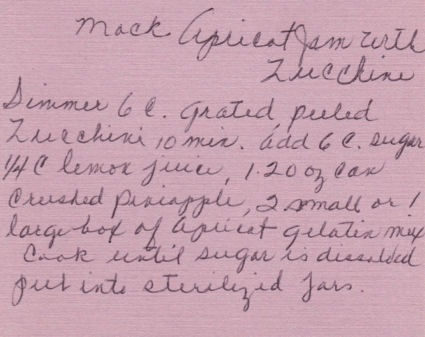 Mock Apricot Jam with
Zucchini
Simmer 6 C. grated peeled
Zucchini 10 min. add 6 C. sugar
1/4 C lemon juice, 1-20 oz can
Crushed Pineapple, 2 small or 1
large box of apricot gelatin mix
Cook until sugar is dissolved
put into sterilized jars.